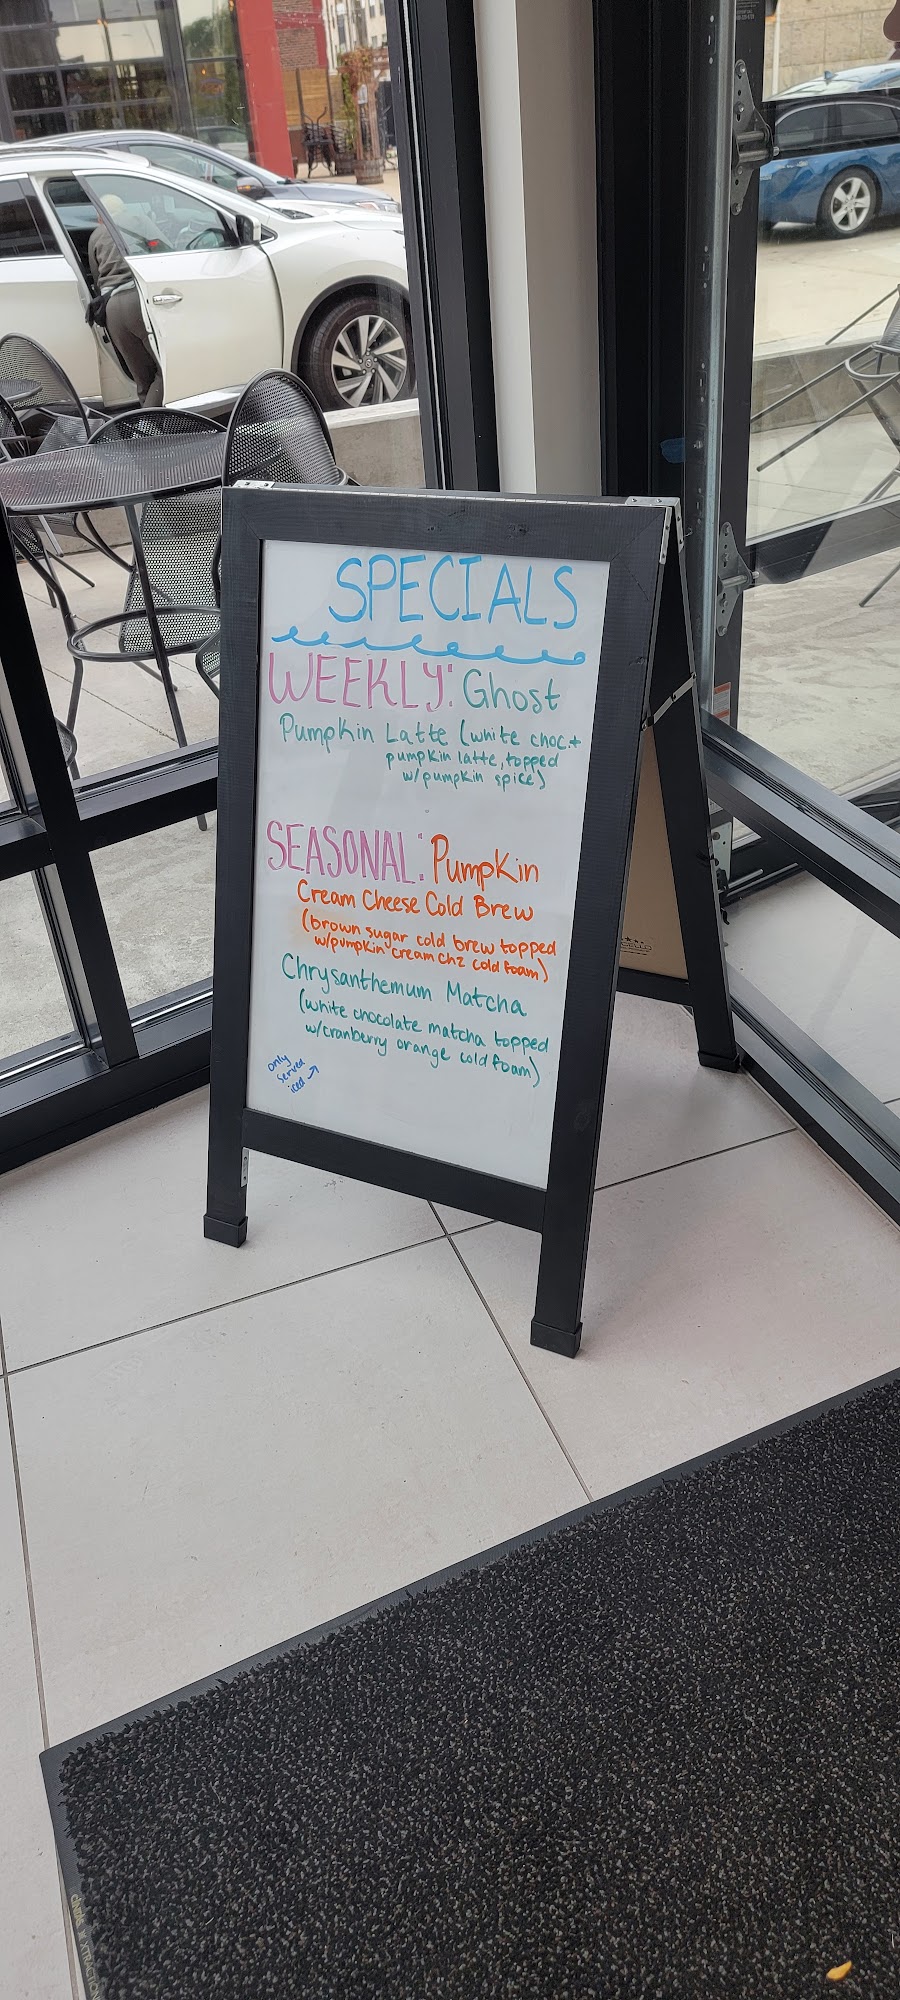 SPECIALS
WEEKLY: Ghost
Pumpkin Latte (white choc.+
pumpkin latte, topped
w/pumpkin spice)
SEASONAL: Pumpkin
Cream Cheese Cold Brew
(brown sugar cold brew topped
w/pumpkin cream chz cold foam)
Chrysanthemum Matcha
(white chocolate matcha topped
w/cranberry orange cold foam)
only
served
iced